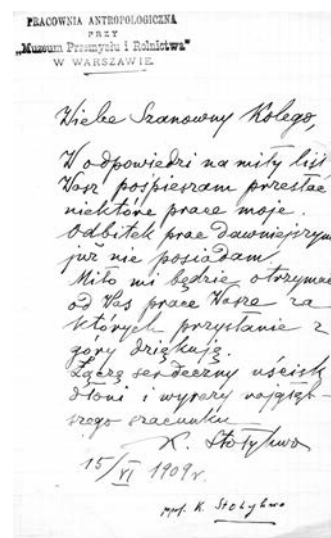 PRACOWNIA ANTROPOLOGICZNA
PRZY
„Muzeum Przemysłu i Rolnictwa"
W WARSZAWIE.
Wielce Szanowny Kolego,
W odpowiedzi na miły list
Wasz pośpieszam przesłać
niektóre prace moje.
Odbitek prac dawniejszych
już nie posiadam.
Miło mi będzie otrzymać
od Was prace Wasze za
których przysłanie z
góry dziękuję.
Łączę serdeczny uścisk
dłoni i wyrazy najgłęb-
szego szacunku
K. Stołyhwo
15/VI 1909 r.
K. Stołyhwo